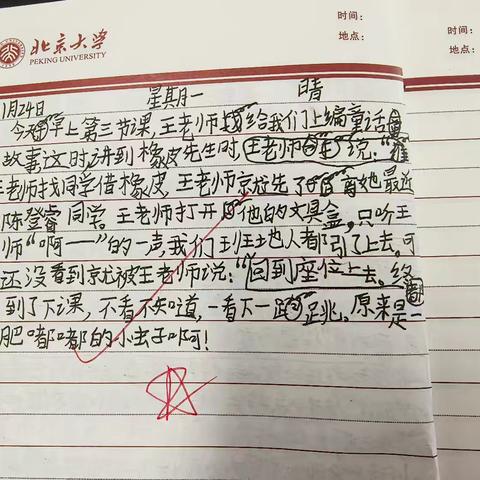 北京大学
PEKING UNIVERSITY
时间：
地点：
时间：
地点：
1月24日 星期一 晴
今天早上第三节课，王老师给我们上编童话
故事这时讲到橡皮先生时，王老师说：“谁
老师找同学借橡皮，王老师先了她最近
陈登睿同学。王老师打开他的文具盒，只听王
师“啊一一”的一声，我们其他人都引了上去。可
还没看到就被王老师说：“回到座位上去。终
到了下课，不看不知道，一看下一跳。原来是一
肥嘟嘟的小虫子啊！